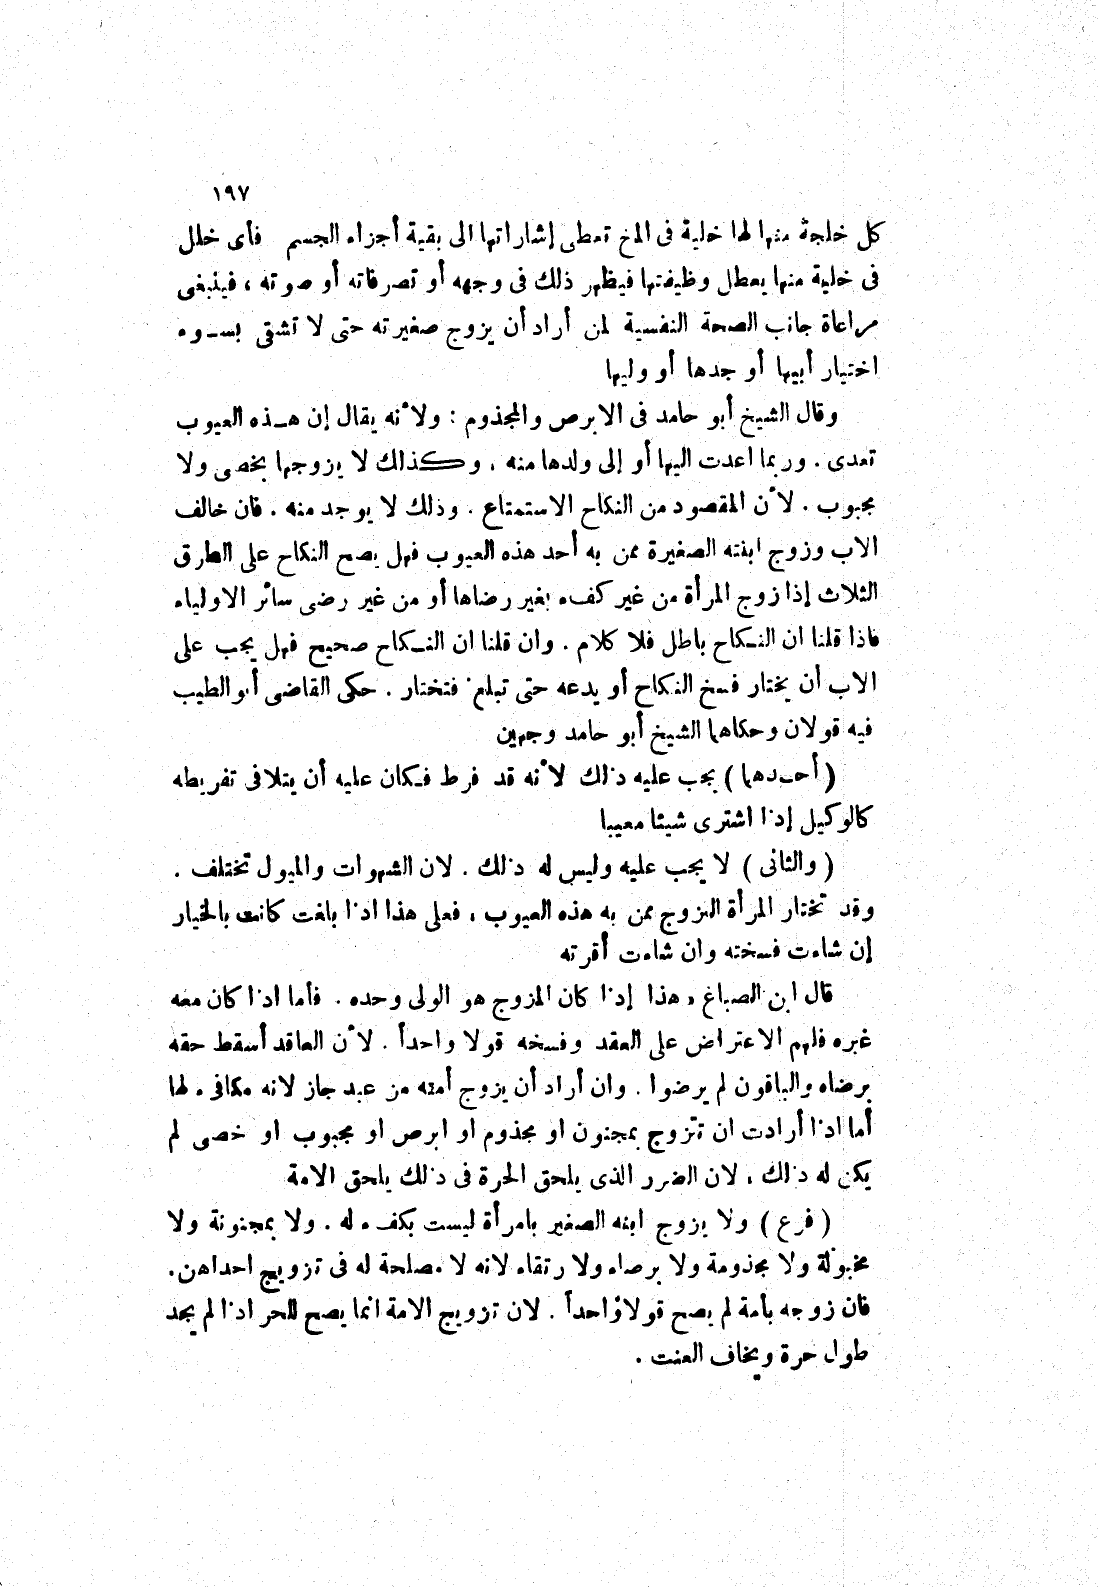 ١٩٧
كل خلجة منها لها خلية فى المخ تعطى إشاراتها الى بقية أجزاء الجسم فأى خلل
فى خلية منها يعطل وظيفتها فيظهر ذلك فى وجهه أو تصرفاته أو صوته ، فينبغى
مراعاة جانب الصحة النفسية لمن أراد أن يزوج صغيرته حتى لا تشقى بسوء
اختيار أبيها أو جدها أو وليها
وقال الشيخ أبو حامد فى الابرص والمجذوم : ولأنه يقال إن هذه العيوب
تعدى . وربما اعدت اليها أو إلى ولدها منه ، وكذلك لا يزوجها بخصى ولا
مجبوب . لأن المقصود من النكاح الاستمتاع . وذلك لا يوجد منه . فان خالف
الاب وزوج ابنته الصغيرة ممن به أحد هذه العيوب فهل يصح النكاح على الطرق
الثلاث إذا زوج المرأة من غير كفء بغير رضاها أو من غير رضى سائر الاولياء
فاذا قلنا ان النكاح باطل فلا كلام . وان قلنا ان النكاح صحيح فهل يجب على
الاب أن يختار فسخ النكاح أو يدعه حتى تبلغ فتختار . حكى القاضى أبو الطيب
فيه قولان وحكاهما الشيخ أبو حامد وجهين
( أحدهما ) يجب عليه ذلك لأنه قد فرط فكان عليه أن يتلافى تفريطه
كالوكيل إذا اشترى شيئا معيبا
( والثانى ) لا يجب عليه وليس له ذلك . لان الشهوات والميول تختلف .
وقد تختار المرأة التزوج ممن به هذه العيوب ، فعلى هذا اذا بلغت كانت بالخيار
إن شاءت فسخته وان شاءت أقرته
قال ابن الصباغ ، هذا إذا كان المزوج هو الولى وحده . فأما اذا كان معه
غيره فلهم الاعتراض على العقد وفسخه قولا واحداً . لأن العاقد أسقط حقه
برضاه والباقون لم يرضوا . وان أراد أن يزوج أمته من عبد جاز لانه مكافىء لها
أما اذا أرادت ان تزوج بمجنون او مجذوم او ابرص او مجبوب او خصى لم
يكن له ذلك ، لان الضرر الذى يلحق الحرة فى ذلك يلحق الامة
( فرع ) ولا يزوج ابنه الصغير بامرأة ليست بكفء له . ولا بمجنونة ولا
مخبولة ولا مجذومة ولا برصاء ولا رتقاء لانه لا مصلحة له فى تزويج احداهن.
فان زوجه بأمة لم يصح قولا واحداً . لان تزويج الامة انما يصح للحر اذا لم يجد
طول حرة ويخاف العنت .